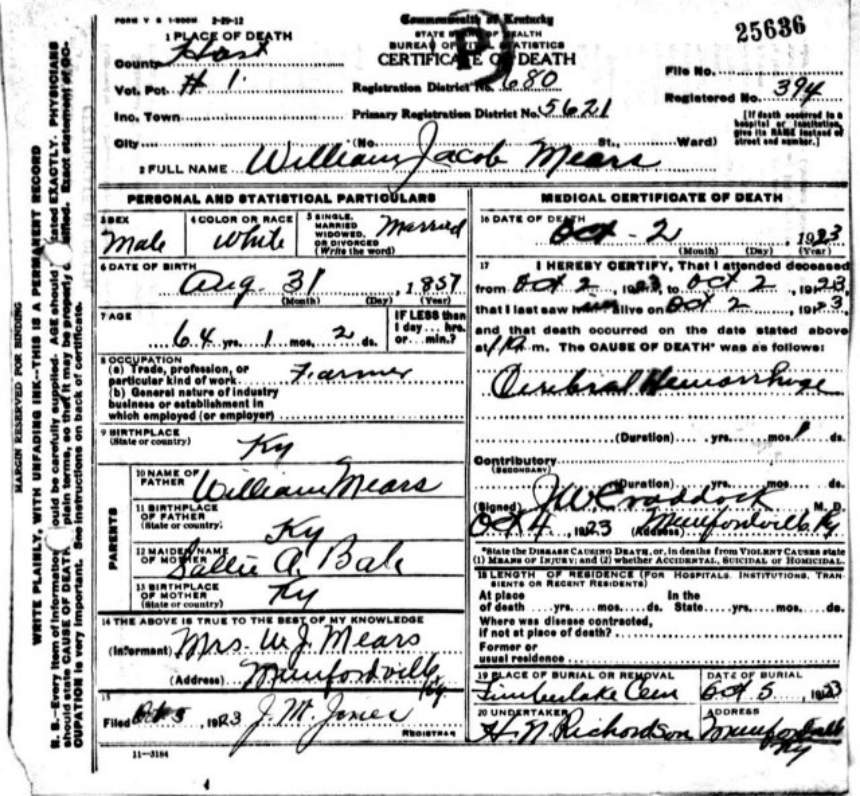 FORM V S 1-500M 2-29-12
Commonwealth of Kentucky
STATE BOARD OF HEALTH
BUREAU OF VITAL STATISTICS
CERTIFICATE OF DEATH
25636
1 PLACE OF DEATH
County Hart
Vot. Pct. # 1
Inc. Town
City (No. St., Ward)
Registration District No. 680
Primary Registration District No. 5621
File No.
Registered No. 394
[If death occurred in a
hospital or institution,
give its NAME instead of
street and number.]
2 FULL NAME William Jacob Mears
PERSONAL AND STATISTICAL PARTICULARS
3 SEX
Male
4 COLOR OR RACE
White
5 SINGLE,
MARRIED
WIDOWED,
OR DIVORCED
(Write the word)
Married
6 DATE OF BIRTH
Aug. 31, 1857
(Month) (Day) (Year)
7 AGE
64 yrs. 1 mos. 2 ds.
IF LESS than
1 day... hrs.
or... min.?
8 OCCUPATION
(a) Trade, profession, or
particular kind of work Farmer
(b) General nature of industry
business or establishment in
which employed (or employer)
9 BIRTHPLACE
(State or country)
Ky
PARENTS
10 NAME OF
FATHER
William Mears
11 BIRTHPLACE
OF FATHER
(State or country)
Ky
12 MAIDEN NAME
OF MOTHER
Sallie A. Bale
13 BIRTHPLACE
OF MOTHER
(State or country)
Ky
14 THE ABOVE IS TRUE TO THE BEST OF MY KNOWLEDGE
(Informant) Mrs. W J. Mears
(Address) Munfordville
Ky
15
Filed Oct 5, 1923 J. M. Jones
REGISTRAR
11-3184
MEDICAL CERTIFICATE OF DEATH
16 DATE OF DEATH
Oct - 2, 1923
(Month) (Day) (Year)
17 I HEREBY CERTIFY, That I attended deceased
from Oct 2, 1923, to Oct 2, 1923,
that I last saw him alive on Oct 2, 1923,
and that death occurred on the date stated above
at m. The CAUSE OF DEATH* was as follows:
Cerebral Hemorrhage
(Duration) yrs. mos. 1 ds.
Contributory
(SECONDARY)
(Duration) yrs. mos. ds.
(Signed) J W Craddock M. D.
Oct 4, 1923 (Address) Munfordville, Ky
*State the DISEASE CAUSING DEATH, or, in deaths from VIOLENT CAUSES state
(1) MEANS OF INJURY; and (2) whether ACCIDENTAL, SUICIDAL OR HOMICIDAL.
18 LENGTH OF RESIDENCE (FOR HOSPITALS, INSTITUTIONS, TRAN-
SIENTS OR RECENT RESIDENTS)
At place In the
of death yrs. mos. ds. State yrs. mos. ds.
Where was disease contracted,
if not at place of death?
Former or
usual residence
19 PLACE OF BURIAL OR REMOVAL
Timberlake Cem
DATE OF BURIAL
Oct 5, 1923
20 UNDERTAKER
H. N. Richardson
ADDRESS
Munfordville
Ky
MARGIN RESERVED FOR BINDING
WRITE PLAINLY, WITH UNFADING INK—THIS IS A PERMANENT RECORD
N. B.—Every item of information should be carefully supplied. AGE should stated EXACTLY. PHYSICIANS
should state CAUSE OF DEATH plain terms, so that it may be properly Exact statement of OC-
CUPATION is very important. See instructions on back of certificate.